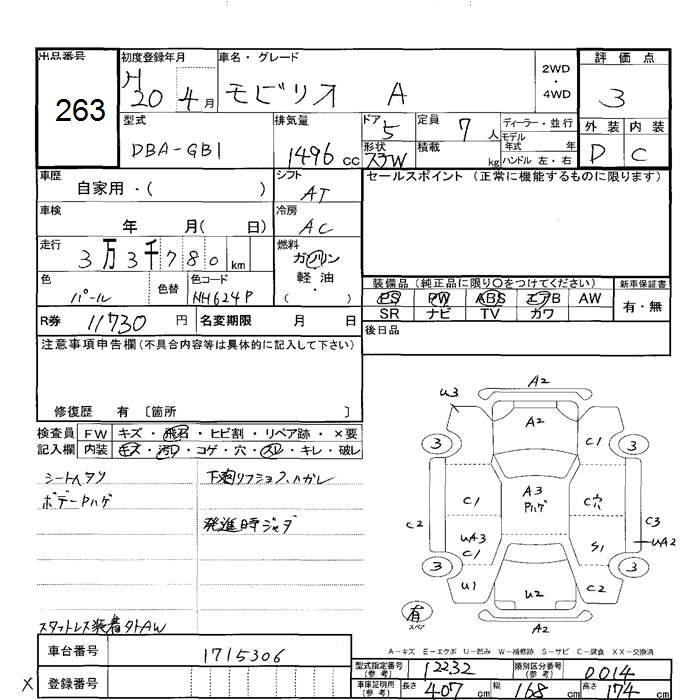 出品番号
263
初度登録年月
H 20 年 4 月
車名・グレード
モビリオ A
2WD
・
4WD
評価点
3
外装 内装
D C
型式
DBA-GB1
排気量
1496 cc
ドア
5
形状
定員
7 人
積載
kg
ディーラー・並行
モデル
年式 年
ハンドル 左・右
車歴
自家用・( )
シフト
AT
セールスポイント (正常に機能するものに限ります)
車検
年 月( 日)
冷房
AC
走行
3万3千780 km
燃料
ガソリン
軽油
・
( )
色
パール
色替
色コード
NH624P
装備品 (純正品に限り○をつけてください)
新車保証書
PS PW ABS エアB AW
SR ナビ TV カワ
有・無
R券 11730 円
名変期限 月 日
後日品
注意事項申告欄(不具合内容等は具体的に記入して下さい)
修復歴 有 〔箇所 〕
検査員
記入欄
FW キズ・飛石・ヒビ割・リペア跡・×要
内装 キズ・汚れ・コゲ・穴・スレ・キレ・破レ
シートヘタリ
ボデーハゲ
発進時ジャダ
スタットレス装着外AW
A2
U3
A2
3
C1
3
C1
A3
Pハゲ
C穴
C2
C3
UA3
C1
S1
UA2
3
3
U1
U2
C2
有
スペア
A2
A-キズ E-エクボ U-凹み W-補修跡 S-サビ C-腐食 XX-交換済
車台番号
1715306
登録番号
X
型式指定番号
(参考)
12232
類別区分番号
(参考)
0014
車庫証明用
(参考)
長さ 407 cm 幅 168 cm 高さ 174 cm